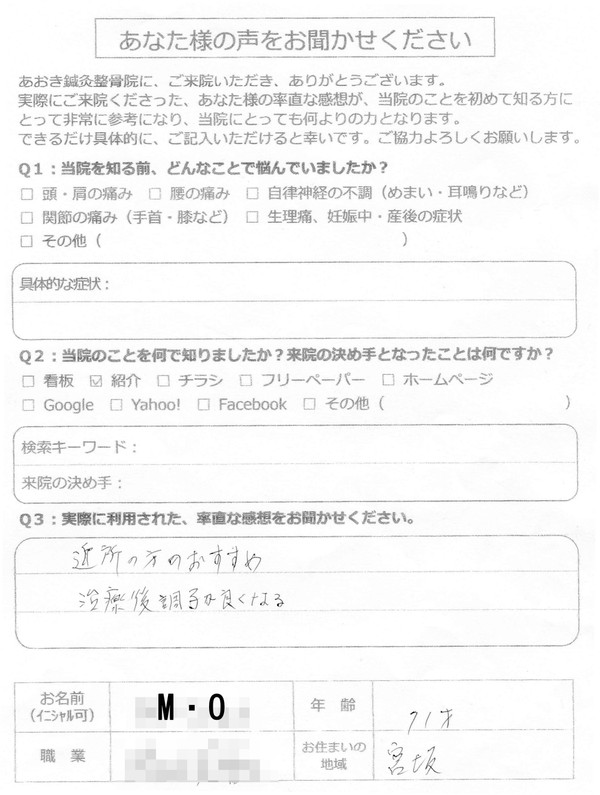 あなた様の声をお聞かせください
あおき鍼灸整骨院に、ご来院いただき、ありがとうございます。
実際にご来院くださった、あなた様の率直な感想が、当院のことを初めて知る方に
とって非常に参考になり、当院にとっても何よりの力となります。
できるだけ具体的に、ご記入いただけると幸いです。ご協力よろしくお願いします。
Q1：当院を知る前、どんなことで悩んでいましたか？
□ 頭・肩の痛み □ 腰の痛み □ 自律神経の不調（めまい・耳鳴りなど）
□ 関節の痛み（手首・膝など） □ 生理痛、妊娠中・産後の症状
□ その他（ ）
具体的な症状：
Q2：当院のことを何で知りましたか？来院の決め手となったことは何ですか？
□ 看板 ☑ 紹介 □ チラシ □ フリーペーパー □ ホームページ
□ Google □ Yahoo! □ Facebook □ その他（ ）
検索キーワード：
来院の決め手：
Q3：実際に利用された、率直な感想をお聞かせください。
近所の方のおすすめ
治療後調子が良くなる
お名前 M・O 年 齢 71才
（イニシャル可）
職 業 お住まいの 宮坂
地域